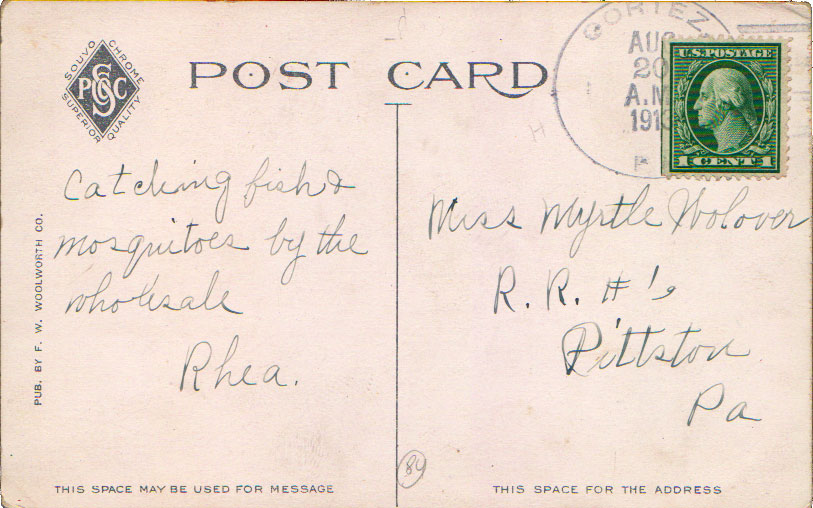 SOUVO CHROME
PSCC
SUPERIOR QUALITY
POST CARD
CORTEZ
AUG
20
A.M
1913
U.S. POSTAGE
1 CENT 1
Catching fish &
mosquitoes by the
wholesale
Rhea.
Miss Myrtle Wolover
R. R. #1,
Pittston
Pa
PUB. BY F. W. WOOLWORTH CO.
84
THIS SPACE MAY BE USED FOR MESSAGE
THIS SPACE FOR THE ADDRESS